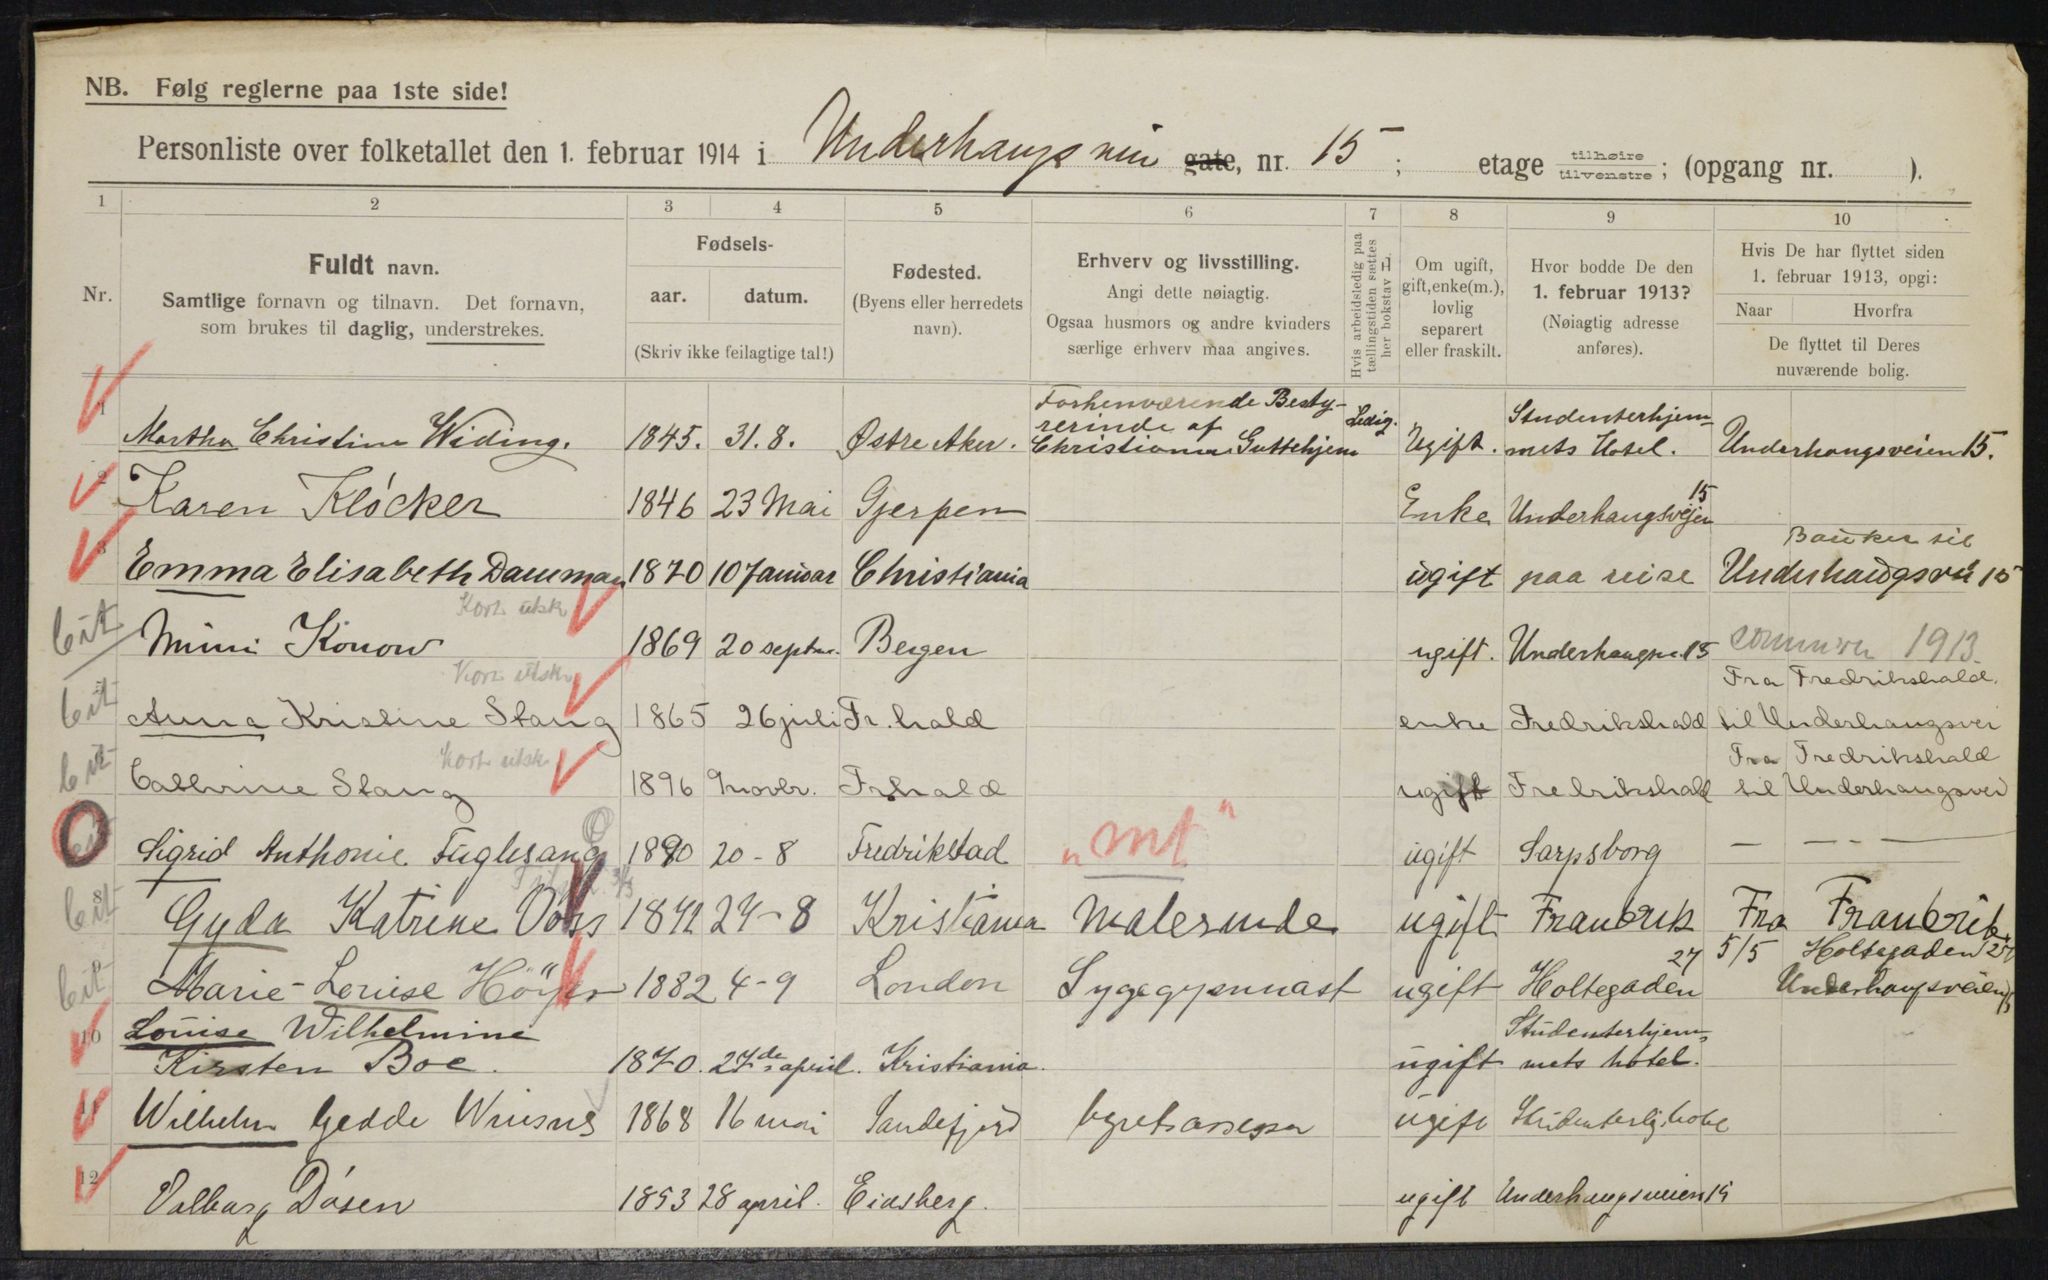 NB. Følg reglerne paa 1ste side!
Personliste over folketallet den 1. februar 1914 i Underhaugsveien gate, nr. 15 ; etage tilhøire tilvenstre ; (opgang nr. ).
1 2 3 4 5 6 7 8 9 10
Nr.
Fuldt navn.
Samtlige fornavn og tilnavn. Det fornavn,
som brukes til daglig, understrekes.
Fødsels-
aar. datum.
(Skriv ikke feilagtige tal!)
Fødested.
(Byens eller herredets
navn).
Erhverv og livsstilling.
Angi dette nøiagtig.
Ogsaa husmors og andre kvinders
særlige erhverv maa angives.
Hvis arbeidsledig paa
tællingstiden sættes
her bokstav L
Om ugift,
gift, enke(m.),
lovlig
separert
eller fraskilt.
Hvor bodde De den
1. februar 1913?
(Nøiagtig adresse
anføres).
Hvis De har flyttet siden
1. februar 1913, opgi:
Naar Hvorfra
De flyttet til Deres
nuværende bolig.
1 Martha Christine Widing. 1845. 31.8. Østre Aker. Forhenværende Besty-
rerinde af
Christiania Guttehjem Ledig. Ugift. Studenterhjem-
mets Hotel. Underhaugsveien 15.
2 Karen Klöcker 1846 23 Mai Gjerpen Enke Underhaugsvejen 15
3 Emma Elisabeth Damman 1870 10 Januar Christiania ugift paa reise
Underhaugsvei 15
Kort utskr
Mimi Konow 1869 20 septbr. Bergen ugift. Underhaugsv. 15 sommeren 1913
Kort utskr
Anna Kristine Stang 1865 26 juli Fr.hald enke Fredrikshald Fra Fredrikshald
til Underhaugsvei
Kort utskr
Cathrine Stang 1896 9 novbr. Frhald ugift Fredrikshald Fra Fredrikshald
til Underhaugsvei
Sigrid Anthonie Fuglesang 1890 20-8 Fredrikstad "mt" ugift Sarpsborg — — —
8 Gyda Katrine 1842 24-8 Kristiania Malerinde ugift Frankrik Fra Frankrik
Marie-Louise Höyer 1882 4-9 London Sygegymnast ugift Holtegaden 27 5/5 Holtegaden 27
Underhaugsveien 15
10 Louise Wilhelmine
Kirsten Boe. 1870. 27de april. Kristiania. ugift Studenterhjem-
mets hotel.
11 Wilhelm Gedde 1868 16 mai Sandefjord byretsassessor ugift
12 Valborg Dösen 1853 28 april. Eidsberg. ugift Underhaugsveien 15